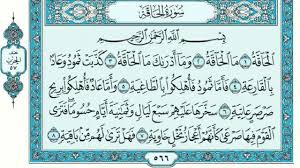 سُورَةُ الحَاقَّةِ
بِسْمِ اللَّهِ الرَّحْمَٰنِ الرَّحِيمِ
الْحَاقَّةُ ١ مَا الْحَاقَّةُ ٢ وَمَا أَدْرَاكَ مَا الْحَاقَّةُ ٣ كَذَّبَتْ ثَمُودُ وَعَادٌ
بِالْقَارِعَةِ ٤ فَأَمَّا ثَمُودُ فَأُهْلِكُوا بِالطَّاغِيَةِ ٥ وَأَمَّا عَادٌ فَأُهْلِكُوا بِرِيحٍ
صَرْصَرٍ عَاتِيَةٍ ٦ سَخَّرَهَا عَلَيْهِمْ سَبْعَ لَيَالٍ وَثَمَانِيَةَ أَيَّامٍ حُسُومًا فَتَرَى
الْقَوْمَ فِيهَا صَرْعَىٰ كَأَنَّهُمْ أَعْجَازُ نَخْلٍ خَاوِيَةٍ ٧ فَهَلْ تَرَىٰ لَهُم مِّن بَاقِيَةٍ ٨
٥٦٦